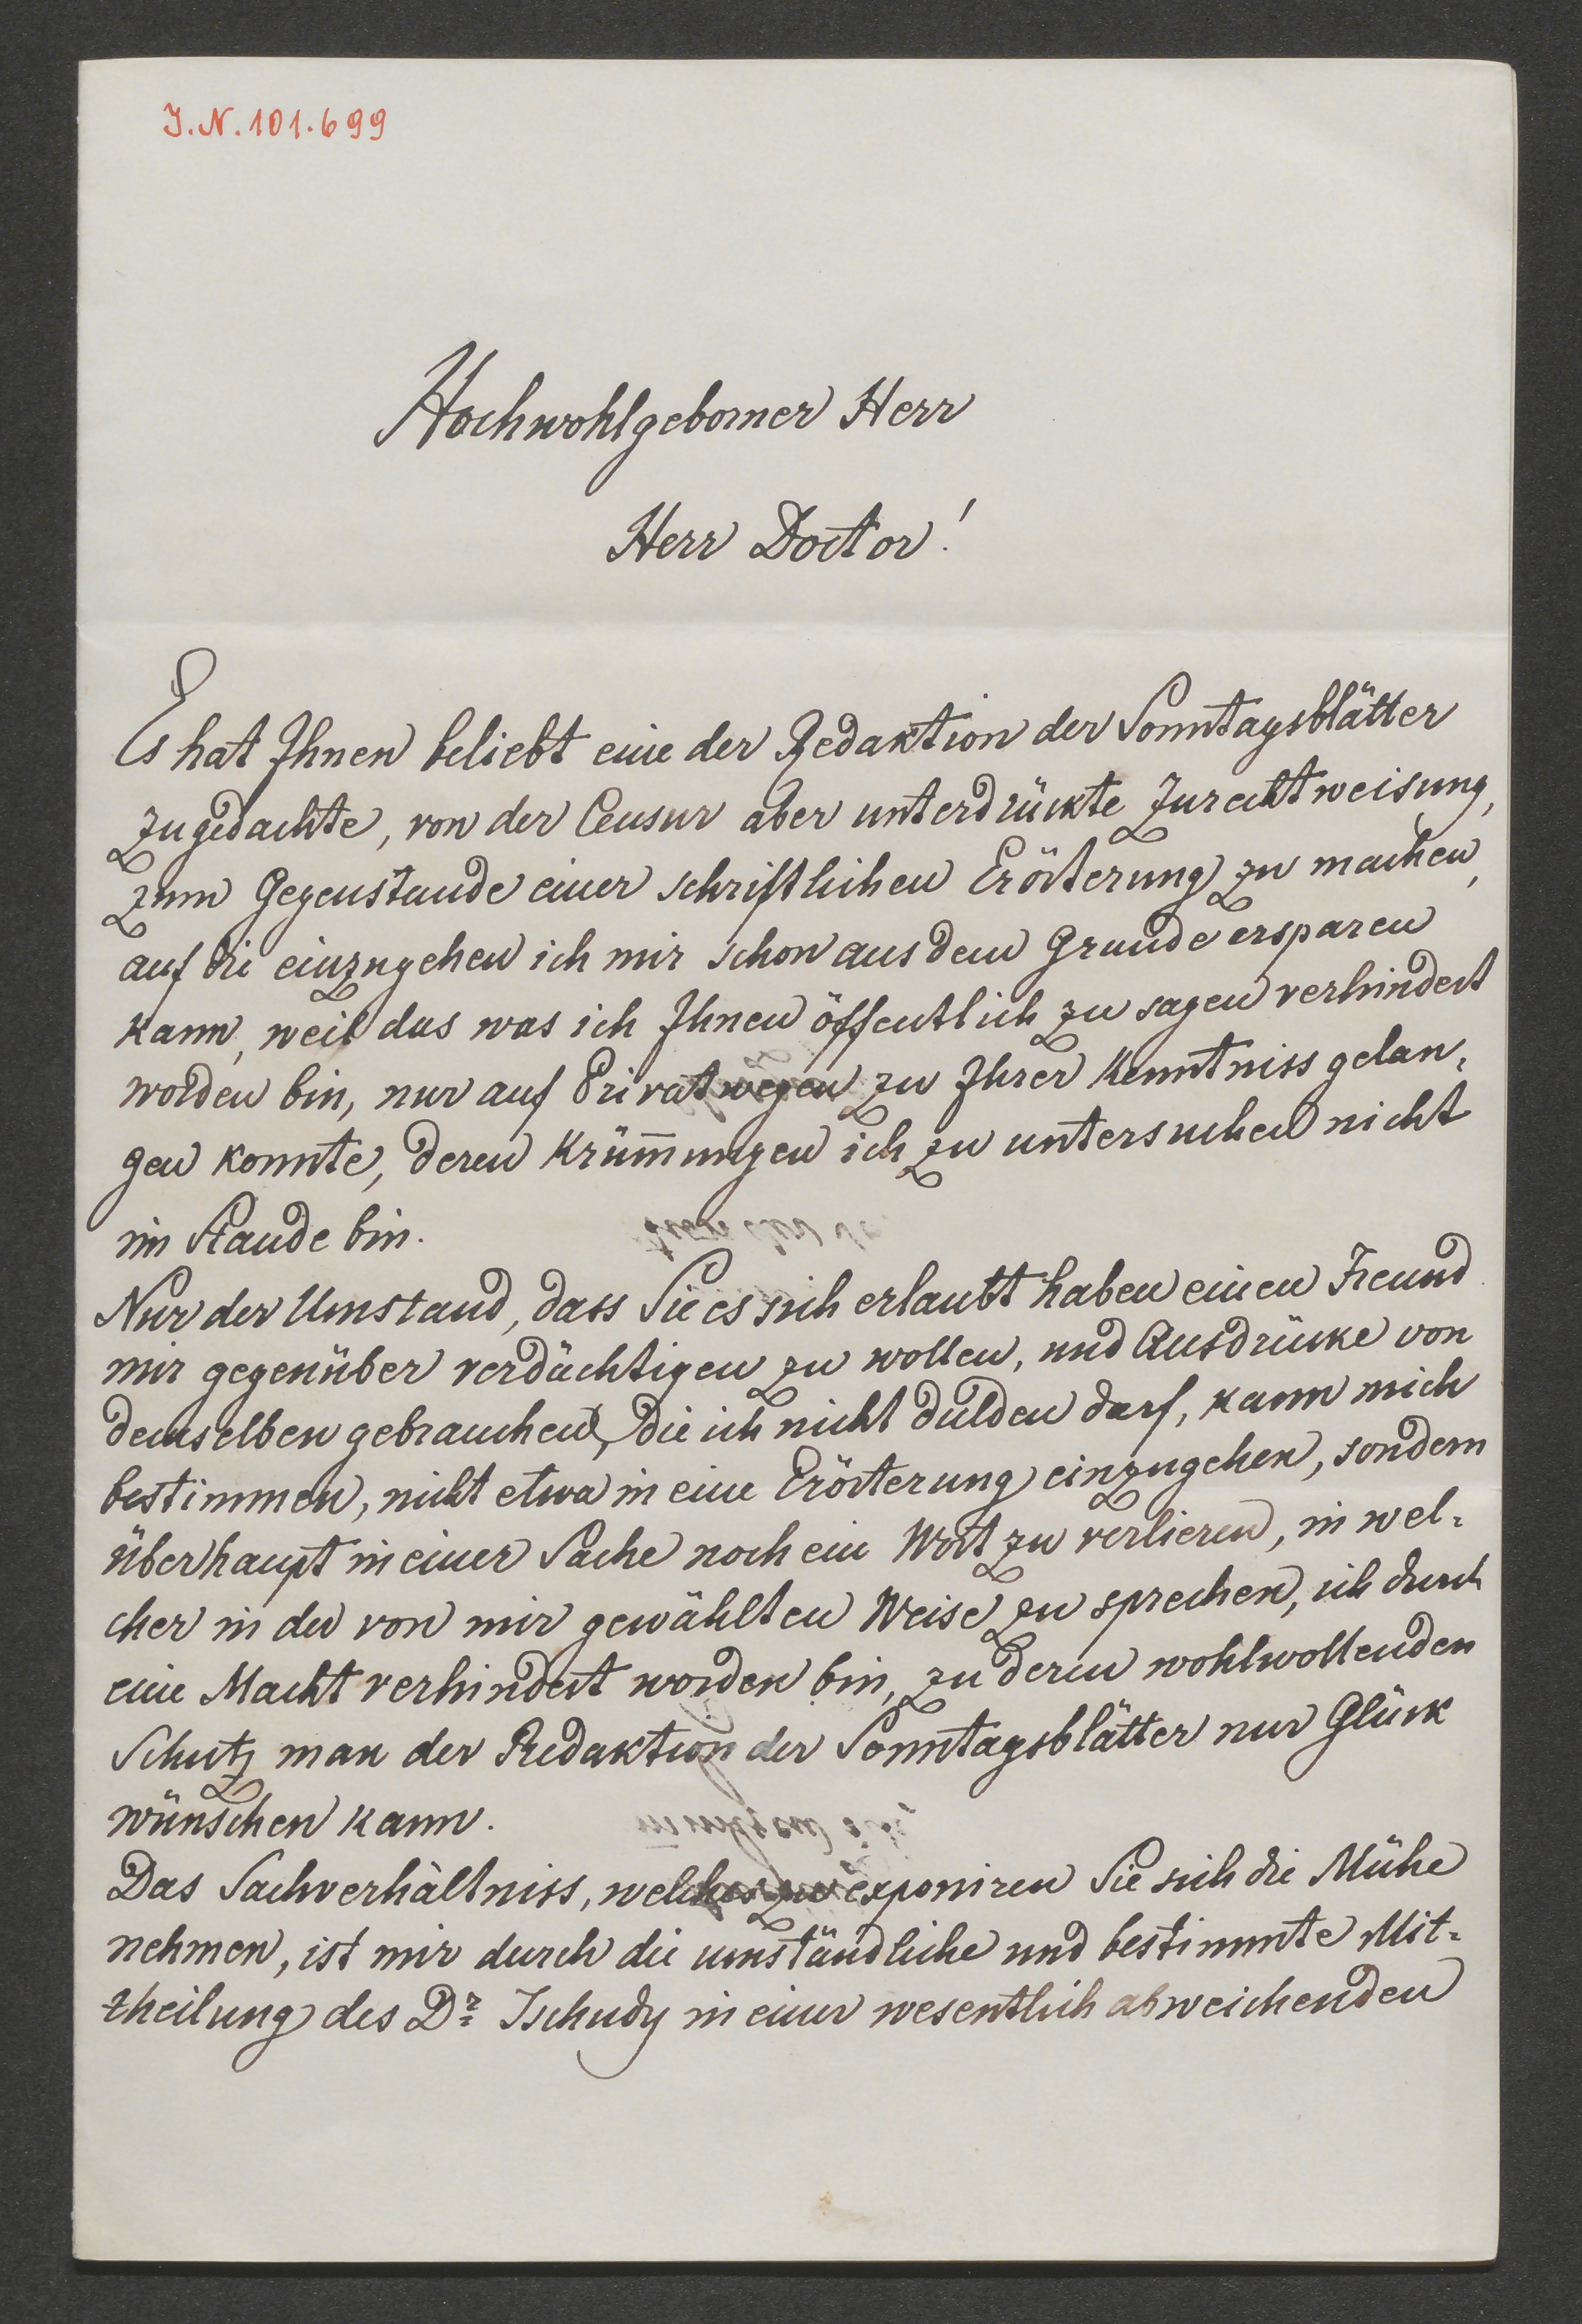 I.N.101.699
Hochwohlgeborner Herr
Herr Doctor!
Es hat Ihnen beliebt eine der Redaktion der Sonntagsblätter
zugedachte, von der Censur aber unterdrückte Zurechtweisung,
zum Gegenstande einer schriftlichen Erörterung zu machen,
auf die einzugehen ich mir schon aus dem Grunde ersparen
kann, weil das was ich Ihnen öffentlich zu sagen verhindert
worden bin, nur auf Privatwegen zu Ihrer Kenntniss gelan-
gen konnte, deren Krüm̄ungen ich zu untersuchen nicht
im Stande bin.
Nur der Umstand, dass Sie es sich erlaubt haben einen Freund
mir gegenüber verdächtigen zu wollen, und Ausdrücke von
demselben gebrauchen, die ich nicht dulden darf, kann mich
bestimmen, nicht etwa in eine Erörterung einzugehen, sondern
überhaupt in einer Sache noch ein Wort zu verlieren, in wel-
cher in der von mir gewählten Weise zu sprechen, ich durch
eine Macht verhindert worden bin, zu deren wohlwollenden
Schutz man der Redaktion der Sonntagsblätter nur Glück
wünschen kann.
Das Sachverhältniss, welches zu exponiren Sie sich die Mühe
nehmen, ist mir durch die umständliche und bestimmte Mit-
theilung des Dr Tschudy in einer wesentlich abweichenden